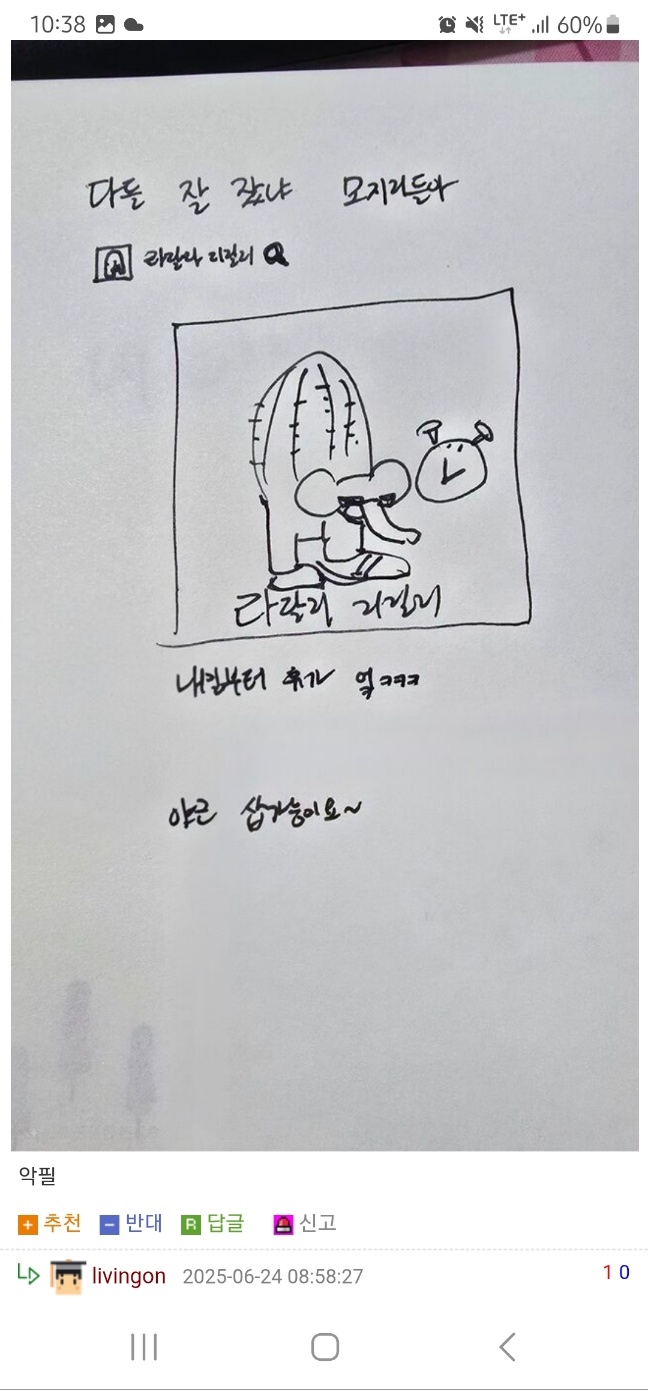 10:38 LTE+ 60%
다들 잘 잤냐 모지리들아
라달리 리릴리
라달리 리릴리
내일부터 휴가 엌ㅋㅋㅋ
야근 삽가능이요~
악필
+ 추천 − 반대 R 답글 신고
livingon 2025-06-24 08:58:27 1 0